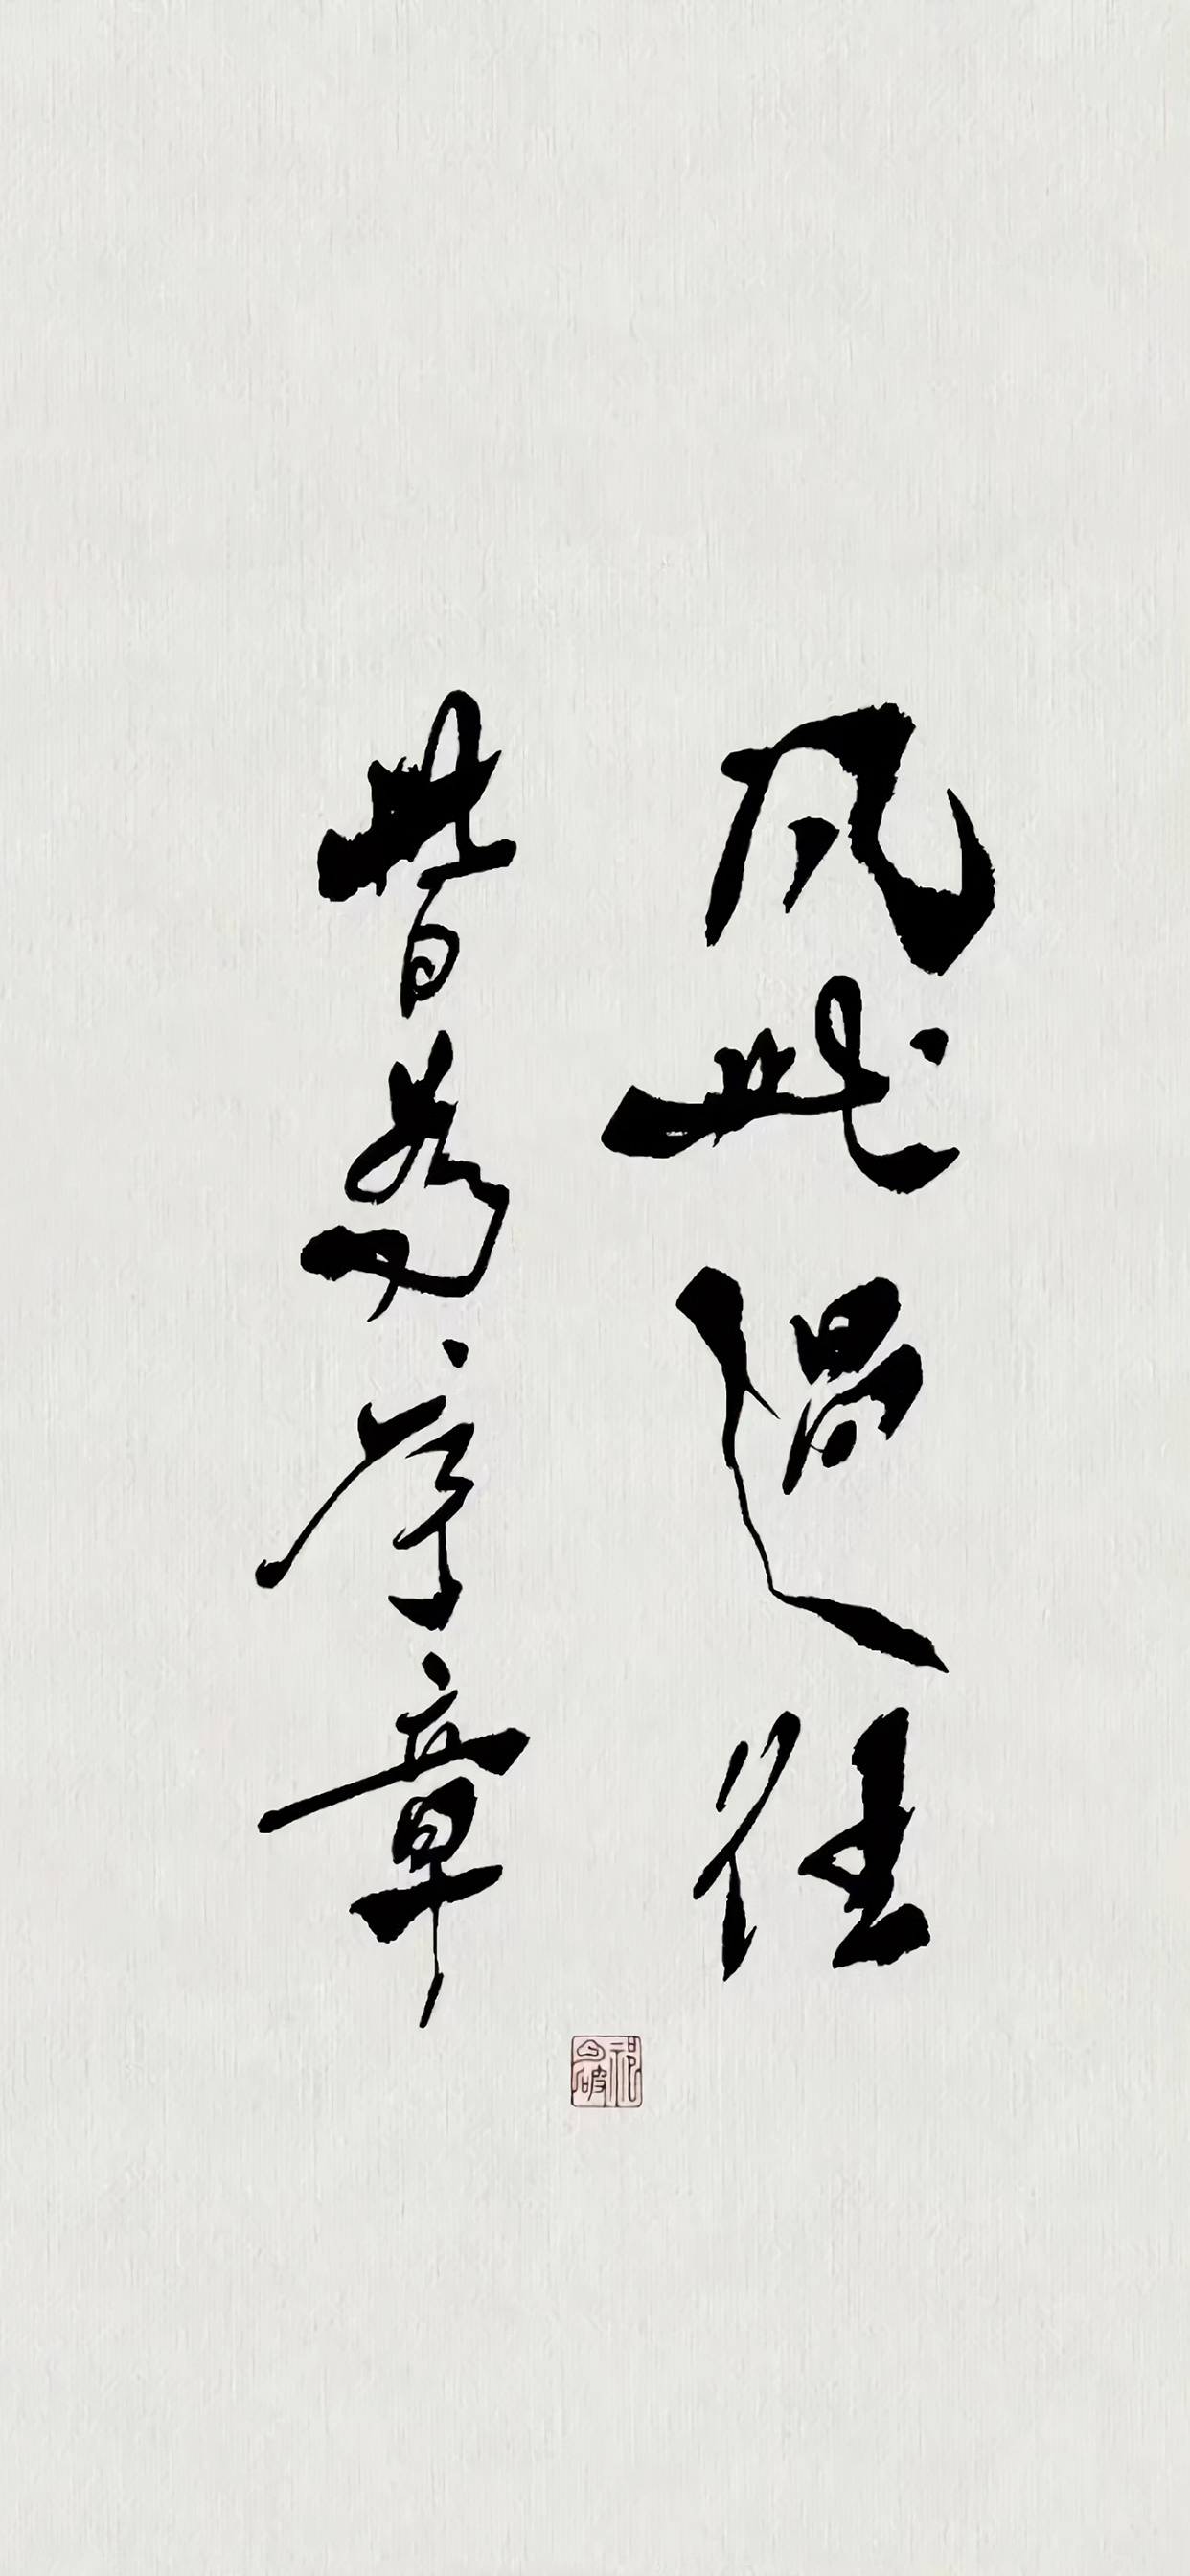 凡此過往
皆為序章